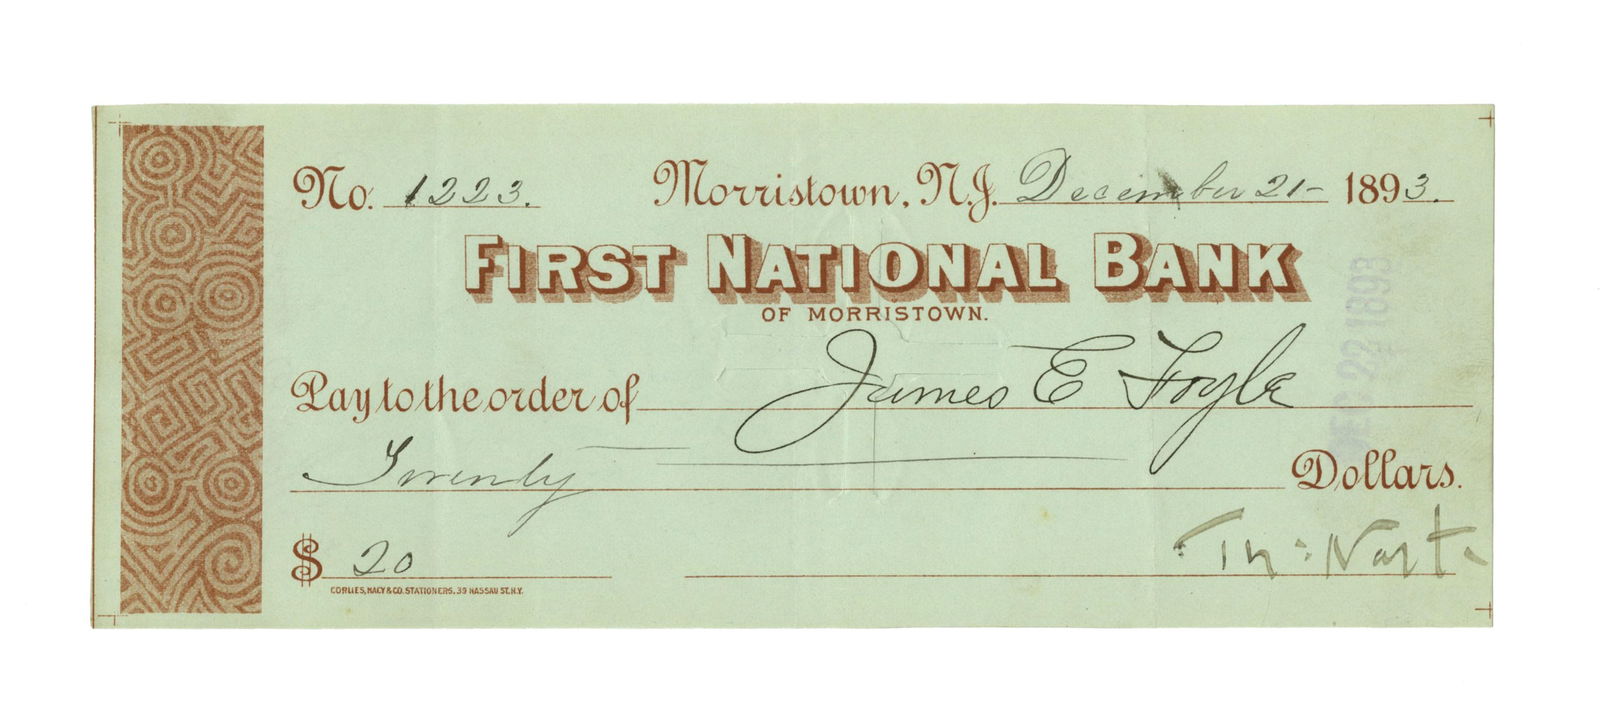 No. 1223. Morristown, N.J. December 21 - 1893.
FIRST NATIONAL BANK
OF MORRISTOWN.
DEC 22 1893
Pay to the order of James E Foyle
Twenty Dollars.
$ 20
Th: Nast.
CORLIES, MACY & CO. STATIONERS. 39 NASSAU ST. N.Y.